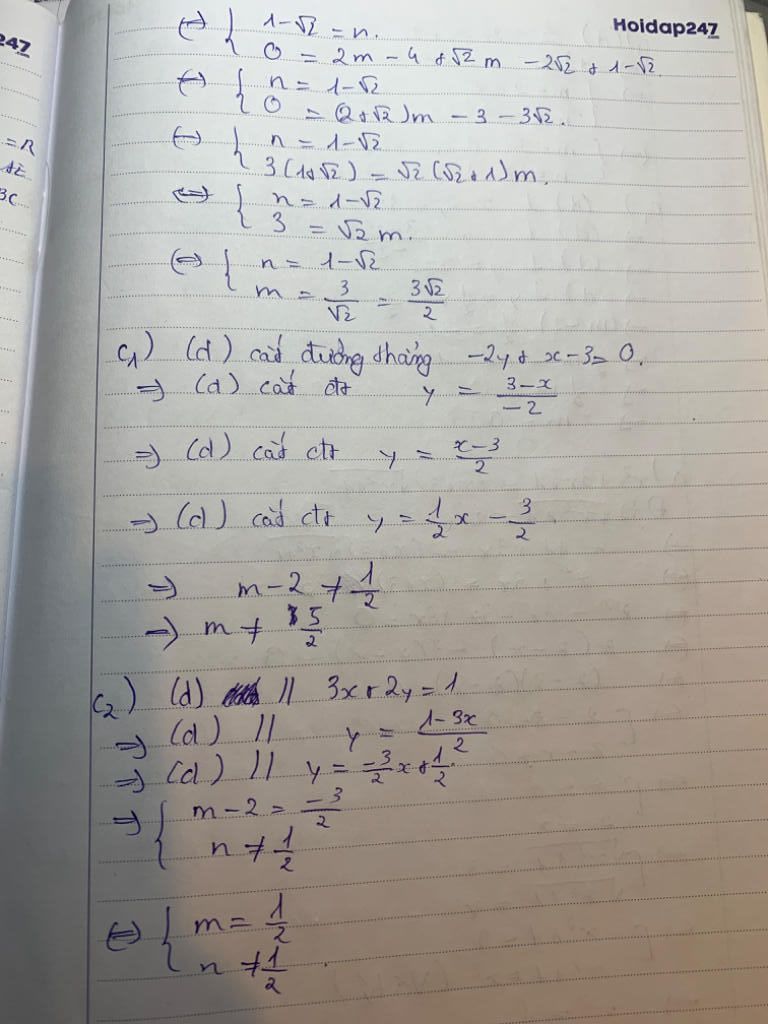 Hoidap247
247
=R
BC
⇔ { 1-√2 = n.
0 = 2m - 4 + √2 m - 2√2 + 1-√2.
⇔ { n = 1-√2
0 = (2+√2)m - 3 - 3√2.
⇔ { n = 1-√2
3(1+√2) = √2(√2+1)m.
⇔ { n = 1-√2
3 = √2 m.
⇔ { n = 1-√2
m = 3/√2 = 3√2/2
c₁) (d) cắt đường thẳng -2y + x - 3 = 0.
⇒ (d) cắt đt y = (3-x)/-2
⇒ (d) cắt đt y = (x-3)/2
⇒ (d) cắt đt y = 1/2 x - 3/2
⇒ m-2 ≠ 1/2
⇒ m ≠ 5/2
c₂) (d) // 3x + 2y = 1
⇒ (d) // y = (1-3x)/2
⇒ (d) // y = -3/2 x + 1/2.
⇒ { m-2 = -3/2
n ≠ 1/2
⇔ { m = 1/2
n ≠ 1/2.